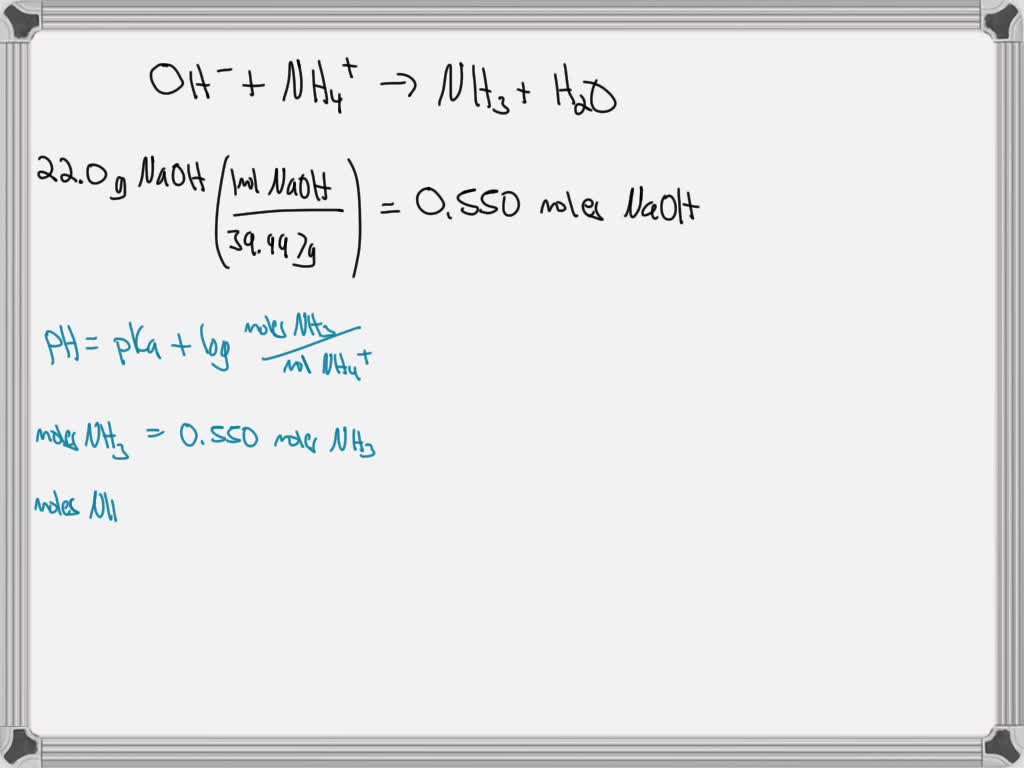 OH⁻ + NH₄⁺ → NH₃ + H₂O
22.0 g NaOH (1 mol NaOH / 39.997g) = 0.550 moles NaOH
pH = pKa + log moles NH₃ / mol NH₄⁺
moles NH₃ = 0.550 moles NH₃
moles NH